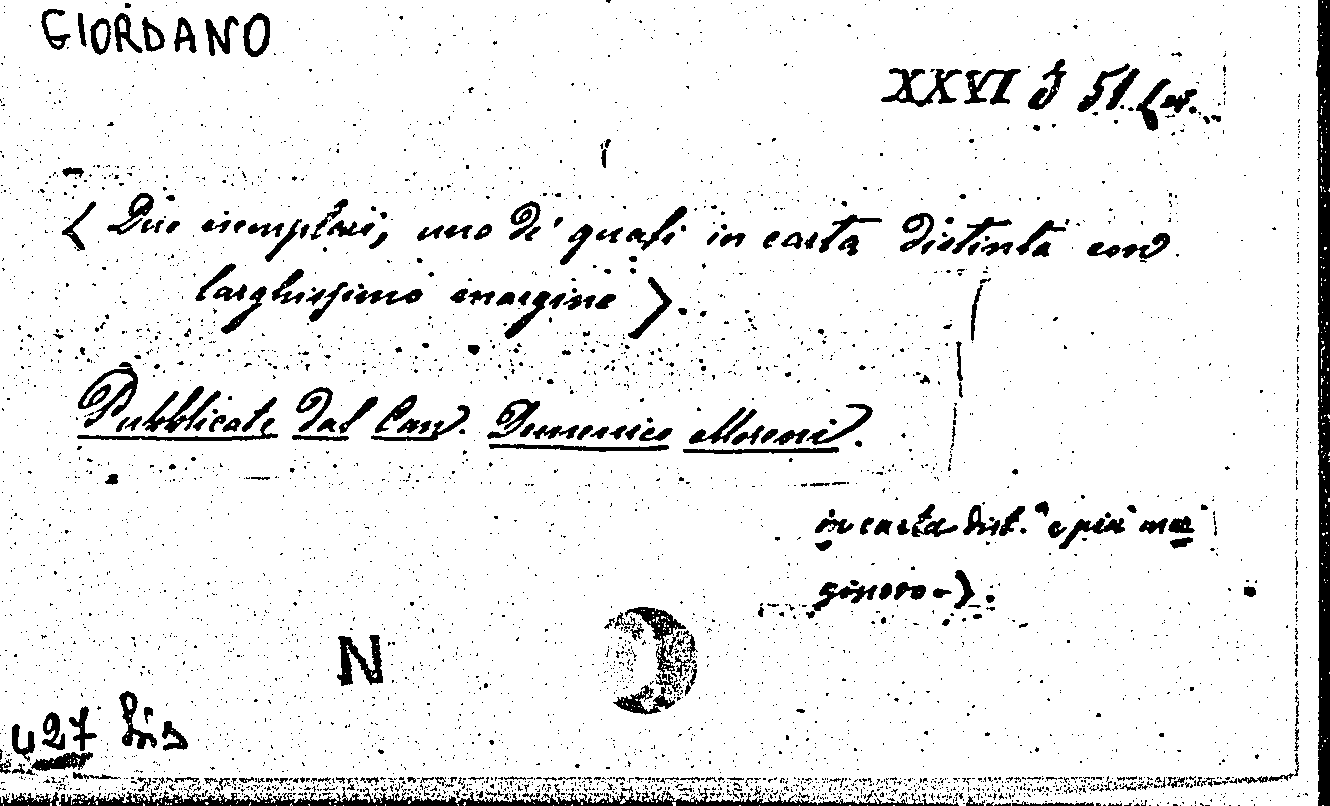 GIORDANO
XXVI J 51
( Due esemplari, uno de' quali in carta distinta con
larghissimo margine ).
Pubblicate dal Can. Domenico Moreni.
in carta dist.ª e più mar
ginoso - ).
N
427 bis